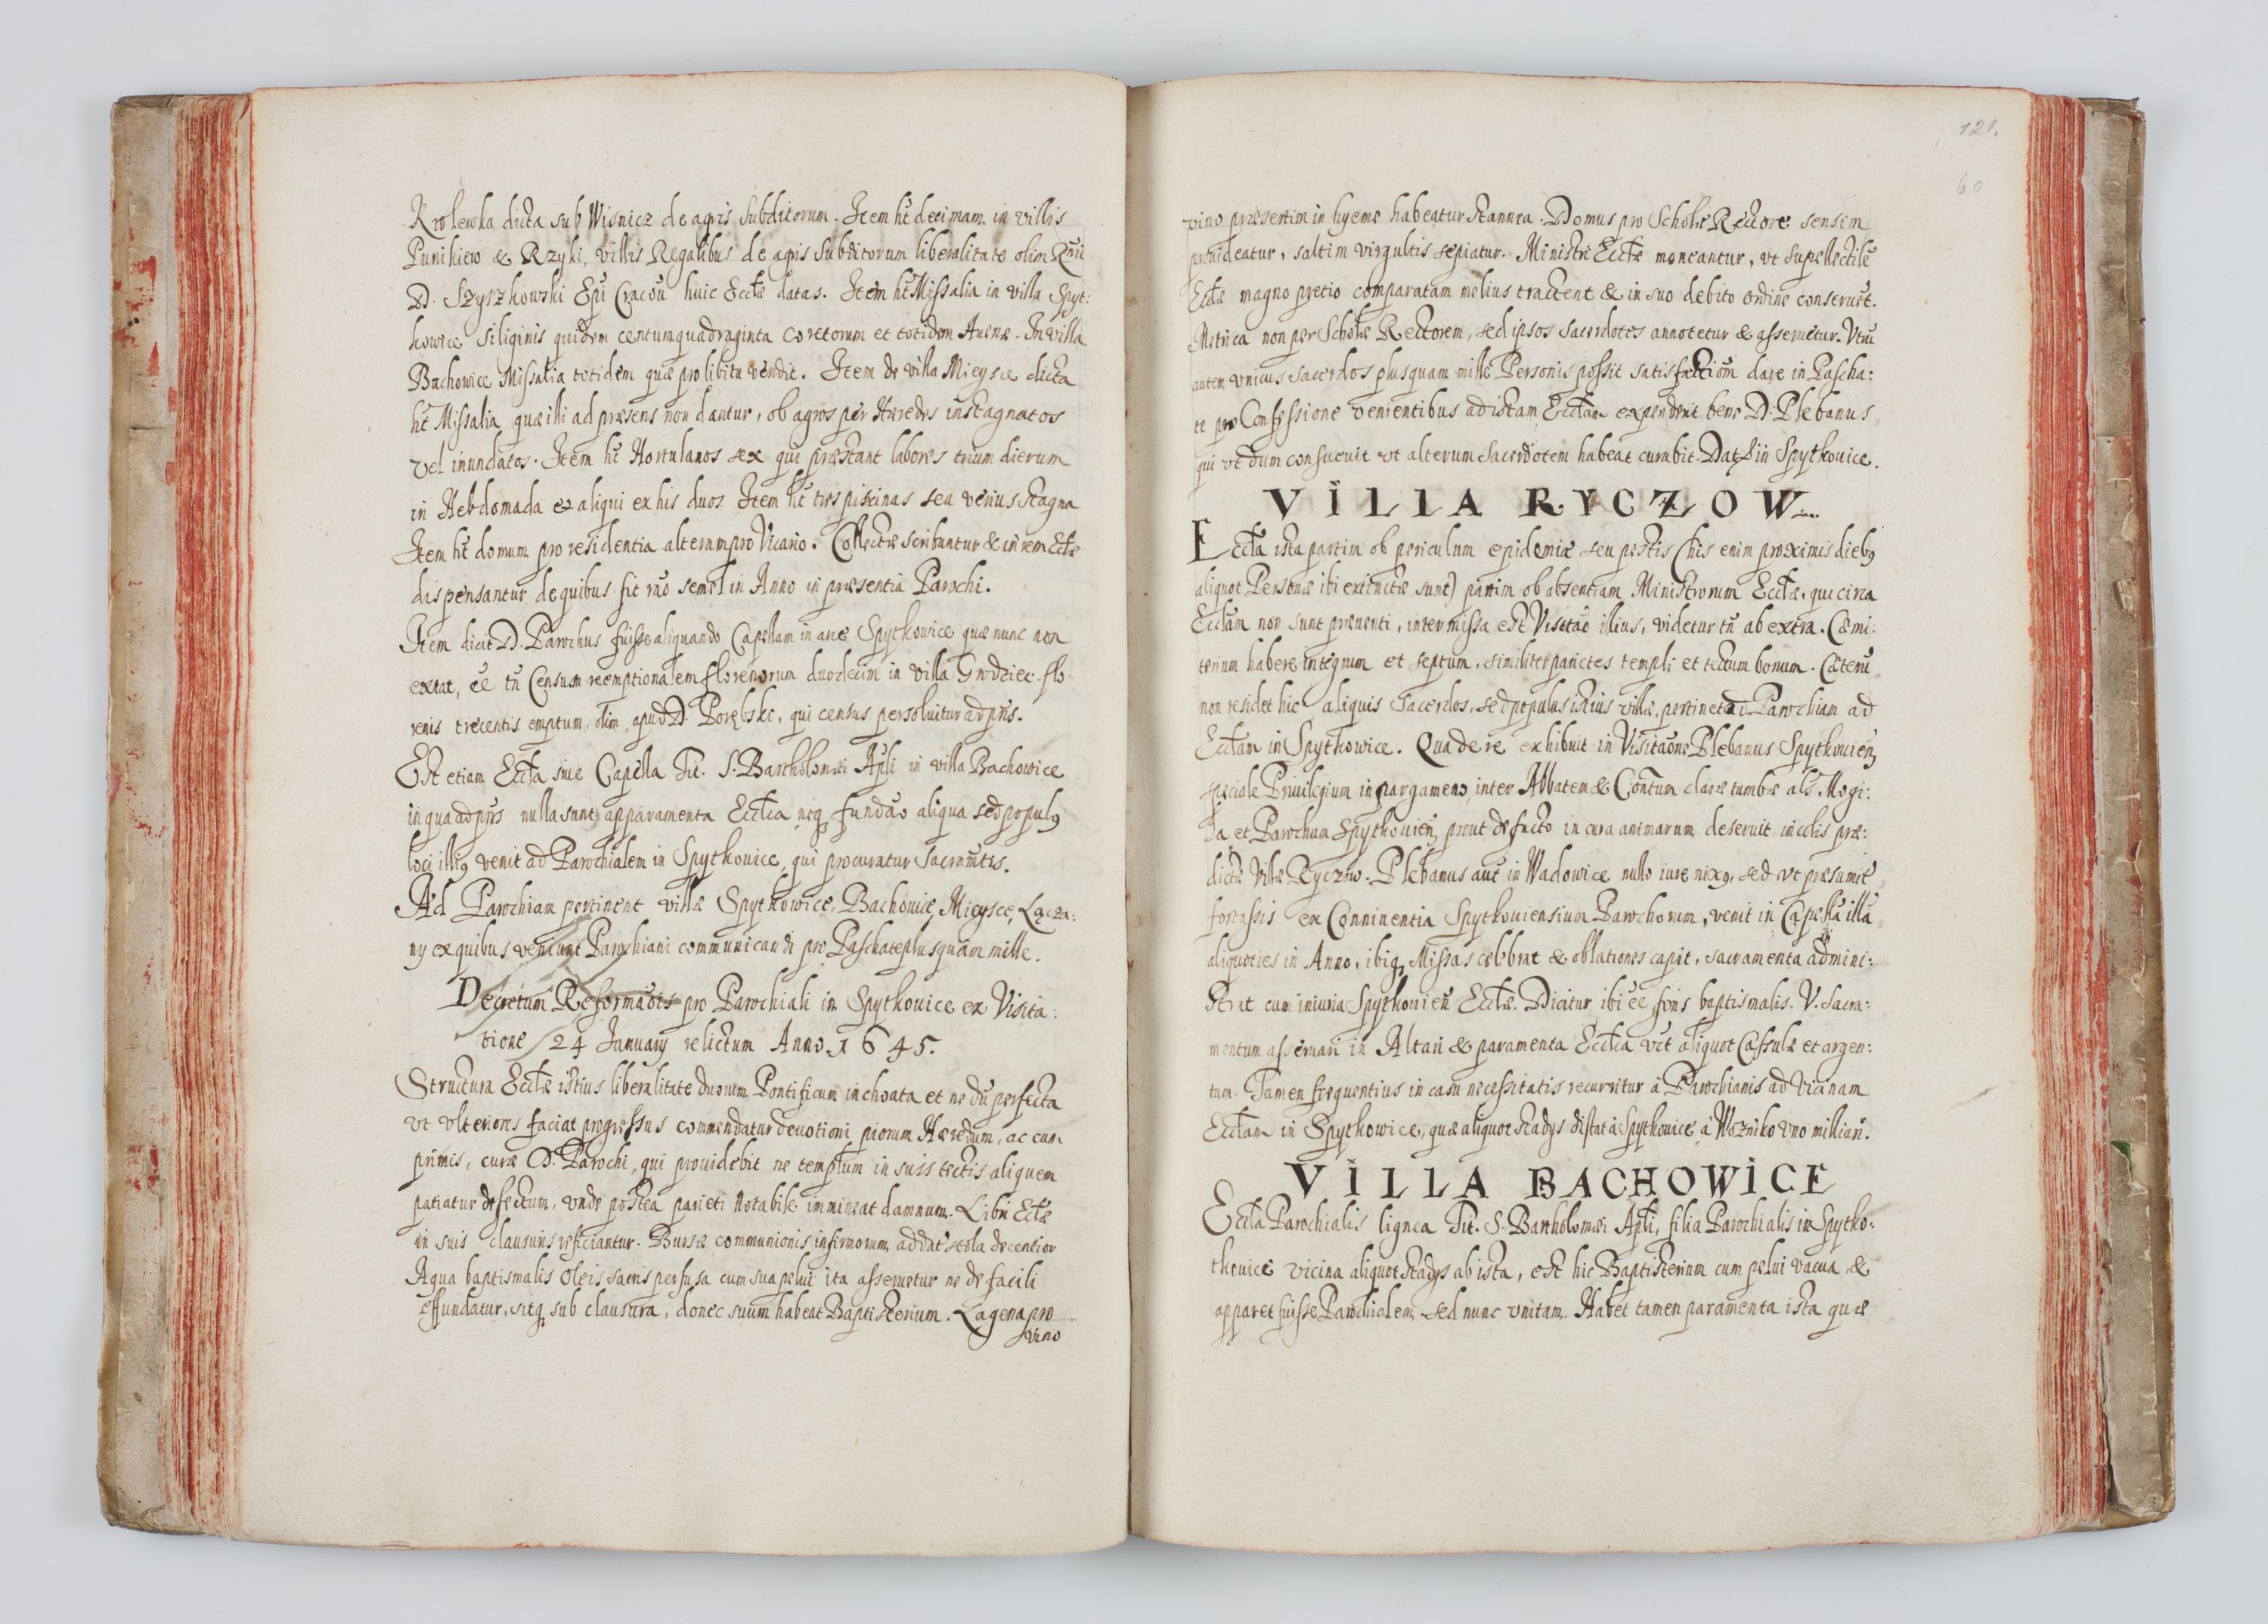 Krolewka dicta sub Wisnicz de agris subditorum. Item ht decimam in villis
Punikiew & Rzyki, villis Regalibus de agris subditorum liberalitate olim Rmi
D. Szyszkowski Epi Cracou huic Ecctæ datas. Item ht Missalia in villa Spyt:
kowice siliginis quidem centumquadraginta coretorum et totidem Auenæ. In villa
Bachowice Missalia totidem quæ pro libitu vendit. Item de villa Mieysce dicta
ht Missalia quæ illi ad præsens non dantur, ob agros per Hæredes instagnatos
vel inundatos. Item ht Hortulanos sex qui præstant labores trium dierum
in Hebdomada & aliqui ex his duos. Item ht tres piscinas seu verius stagna
Item ht domum pro residentia alteram pro Vicario. Collectæ scribuntur & in rem Ecctæ
dispensantur de quibus fit rao semel in Anno in præsentia Parochi.
Item dicit D. Parochus fuisse aliquando Capellam in arce Spytkowice quæ nunc non
extat, ee tn Censum reemptionalem florenorum duodecim in villa Grodziec flo:
renis trecentis emptum, olim apud D. Porębski, qui census persoluitur ad pns.
Est etiam Eccta siue Capella Tit. S. Bartholomæi Apli in villa Bachowice
in qua ad pns nulla sunt apparamenta Ecctica neq fundao aliqua sed populg
loci illig venit ad Parochialem in Spytkowice, qui procuratur Sacramtis.
Ad Parochiam pertinent villæ Spytkowice, Bachowice, Mieysce, Łącza:
ny ex quibus veniunt Parochiani communicandi pro Paschate plusquam mille.
Decretum Reformaois pro Parochiali in Spytkowice ex Visita:
tione 24 January relictum Anno 1645.
Structura Ecctæ istius liberalitate duorum Pontificum inchoata et nedu perfecta
vt vlteriores faciat progressus commendatur deuotioni piorum Hæredum, ac cum
primis, curæ D. Parochi, qui prouidebit ne templum in suis tectis aliquem
patiatur defectum, vnde postea parieti notabile immineat damnum. Libri Ecctæ
in suis clausuris reficiantur. Bursæ communionis infirmorum, addat stola decentior
Aqua baptismalis oleis sacris perfusa cum sua pelui ita asseruetur ne de facili
effundatur, sitq sub clausura, donec suum habeat Baptisterium. Lagena pro
vino
121.
60
vino præsertim in hyeme habeatur stannea. Domus pro Scholæ Rectore sensim
prouideatur, saltim virgultis sepiatur. Ministri Ecctæ moneantur, vt supellectile
Ecctæ magno pretio comparatam melius tractent & in suo debito ordine conseruet.
Metrica non per Scholæ Rectorem, sed ipsos sacerdotes annotetur & asseruetur. Vtru
autem vnicus sacerdos plusquam mille Personis possit satisfactiom dare in Pascha:
te pro Confessione venientibus ad istam Ecctam expendent bene D. Plebanus
qui vt dum consueuit vt alterum sacerdotem habeat curabit. Dat in Spytkowice.
VILLA RYCZOW
Eccta ista partim ob periculum epidemiæ seu pestis (his enim proximis diebg
aliquot Personæ ibi extinctæ sunt) partim ob absentiam Ministrorum Ecctæ, qui circa
Ecctam non sunt præuenti, intermissa est Visitao illius, videtur tn ab extra. Cæmi:
terium habere integrum et septum, similiter parietes templi et tectum bonum. Cæteru
non residet hic aliquis Sacerdos, sed populus istius villæ, pertinet ad Parochiam ad
Ecctam in Spytkowice. Qua de re exhibuit in Visitaone Plebanus Spytkouien
speciale Priuilegium in pargameno inter Abbatem & Contum claræ tumbæ als Mogi:
ła et Parochum Spytkouien prout de facto in cura animarum deseruit incolis præ:
dictæ Villæ Ryczow. Plebanus aut in Wadowice nullo iure nixg, sed vt præsumit
fortassis ex Conninentia Spytkouiensium Parochorum, venit in Capella illa
aliquoties in Anno, ibiq Missas celebrat & oblationes capit, sacramenta admini:
strat cum iniuria Spytkouien Ecctæ. Dicitur ibi ee fons baptismalis. V. Sacra:
mentum asseruari in Altari & paramenta Ecctica vt aliquot Casulæ et argen:
tum. Tamen frequentius in casu necessitatis recurritur a Parochianis ad vicinam
Ecctam in Spytkowice, quæ aliquot stadys distat a Spytkowice a Wozniko vno milliari.
VILLA BACHOWICE
Eccta Parochialis lignea Tit. S. Bartholomæi Apli, filia Parochialis in Spytko:
tkouice vicina aliquot stadys ab ista, est hic Baptisterium cum pelui vacua &
apparet fuisse Parochialem sed nunc vnitam. Habet tamen paramenta ista quæ